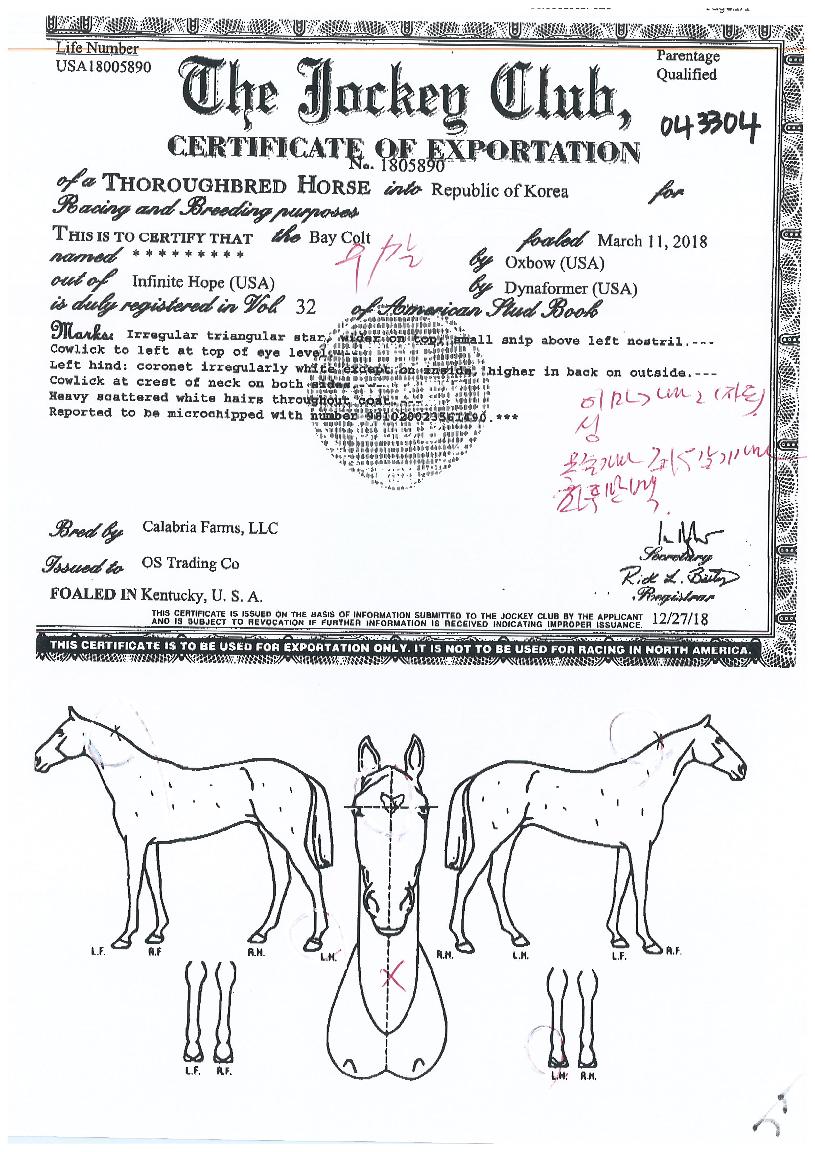 Life Number
USA18005890
Parentage
Qualified
The Jockey Club,
043304
CERTIFICATE OF EXPORTATION
No. 1805890
of a THOROUGHBRED HORSE into Republic of Korea for
Racing and Breeding purposes
THIS IS TO CERTIFY THAT the Bay Colt foaled March 11, 2018
named * * * * * * * * * by Oxbow (USA)
out of Infinite Hope (USA) by Dynaformer (USA)
is duly registered in Vol. 32 of American Stud Book
Marks: Irregular triangular star, wider on top, small snip above left nostril.---
Cowlick to left at top of eye level.---
Left hind: coronet irregularly white except on inside, higher in back on outside.---
Cowlick at crest of neck on both sides.---
Heavy scattered white hairs throughout coat.---
Reported to be microchipped with number .***
Bred by Calabria Farms, LLC
Issued to OS Trading Co
Secretary
Registrar
FOALED IN Kentucky, U. S. A.
THIS CERTIFICATE IS ISSUED ON THE BASIS OF INFORMATION SUBMITTED TO THE JOCKEY CLUB BY THE APPLICANT
AND IS SUBJECT TO REVOCATION IF FURTHER INFORMATION IS RECEIVED INDICATING IMPROPER ISSUANCE. 12/27/18
THIS CERTIFICATE IS TO BE USED FOR EXPORTATION ONLY. IT IS NOT TO BE USED FOR RACING IN NORTH AMERICA.
L.F. R.F. R.H. L.H. R.H. L.H. L.F. R.F.
L.F. R.F. L.H. R.H.